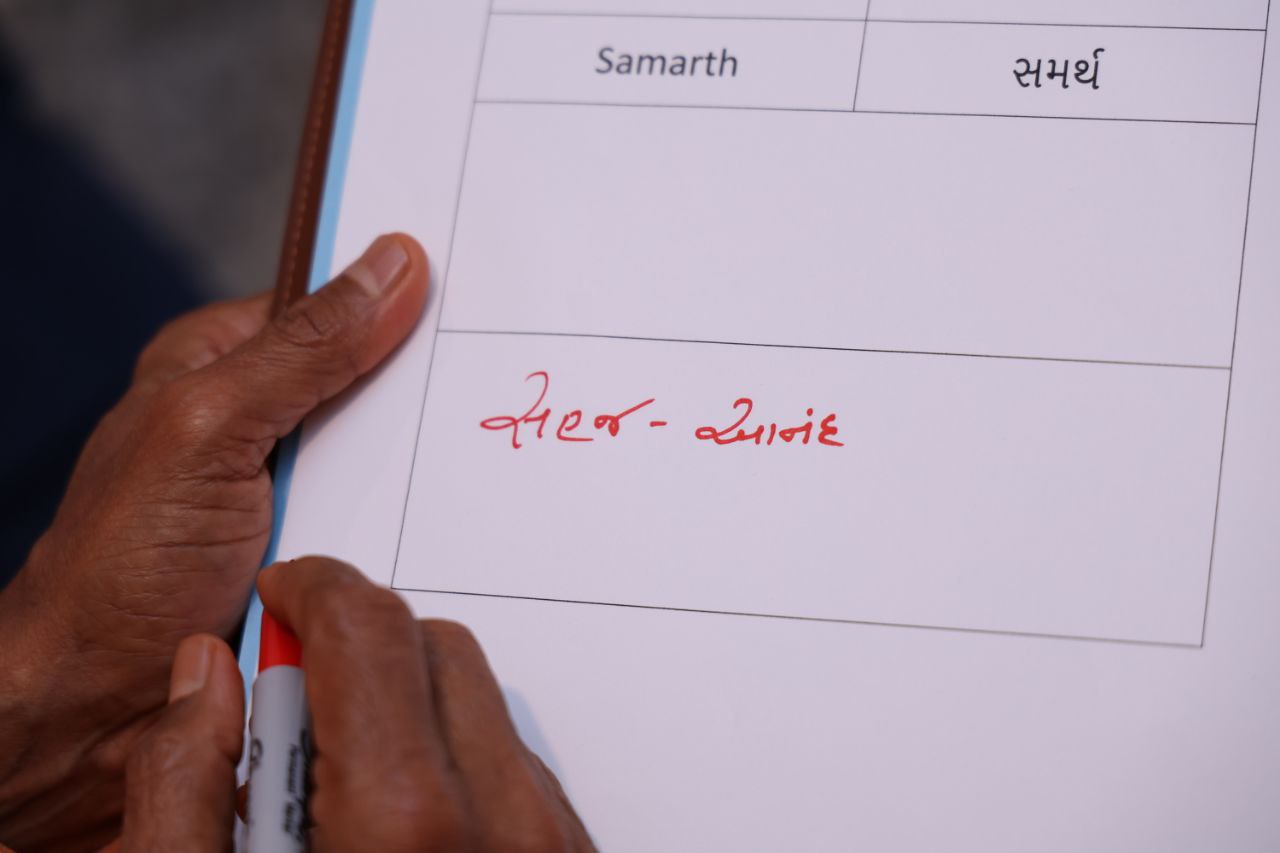 Samarth સમર્થ
સહજ - આનંદ